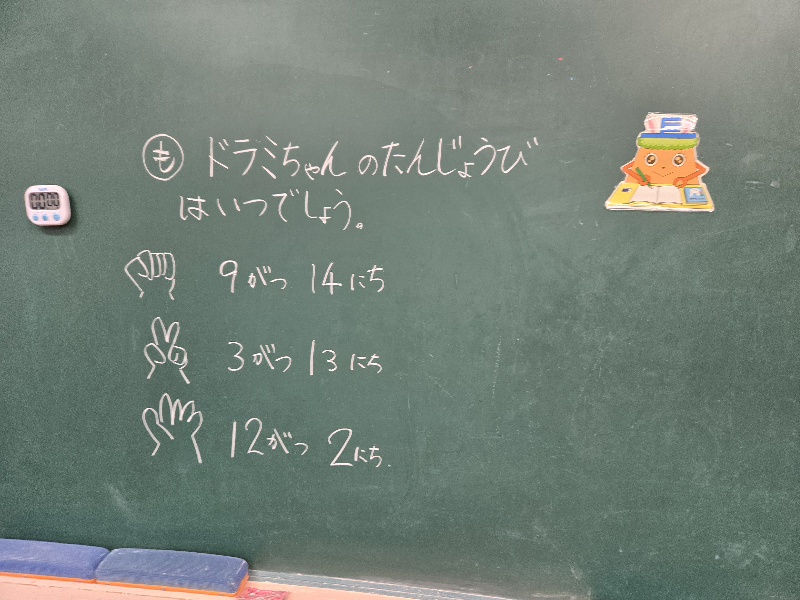 も ドラミちゃんのたんじょうび
はいつでしょう。
9がつ 14にち
3がつ 13にち
12がつ 2にち.
00:00